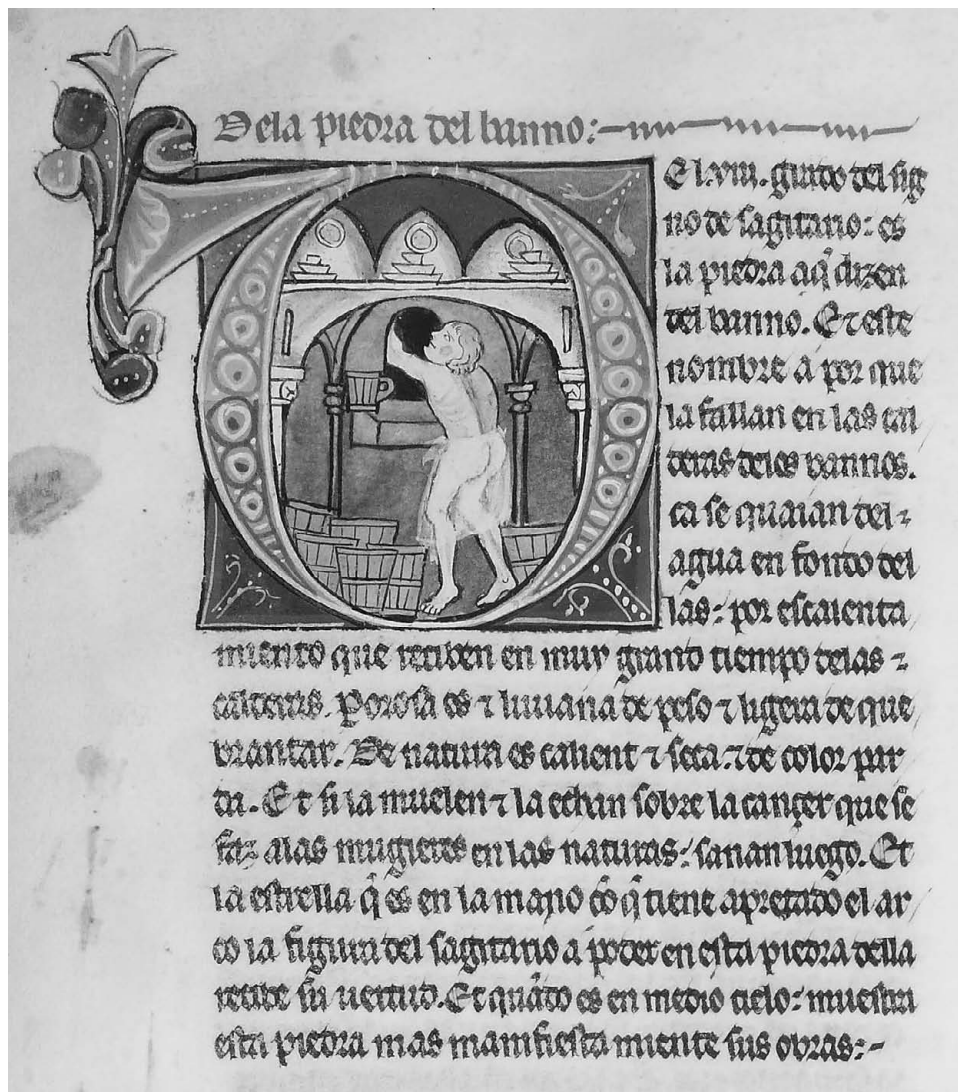 De la piedra del banno:
El .viii. grado del sig
no de sagitario: es
la piedra a q̃ dizen
del banno. Et este
nombre á por que
la fallan en las cal
deras delos bannos.
ca se quaian del
agua en fondo del
las: por escalenta
miento que reciben en muy grand tiempo delas
calderas. Porosa es ⁊ liuiana de peso ⁊ ligera de que
brantar. De natura es calient ⁊ seca. ⁊ de color par
da. Et si la muelen ⁊ la echan sobre la cançer que se
faz alas mugieres en las naturas: sanan luego. Et
la estrella q̃ es en la mano cõ q̃ tiene apretado el ar
co la figura del sagitario á poder en esta piedra ⁊ della
recibe su uertud. Et quãdo es en medio cielo: muestra
esta piedra mas manifiesta miente sus obras:-